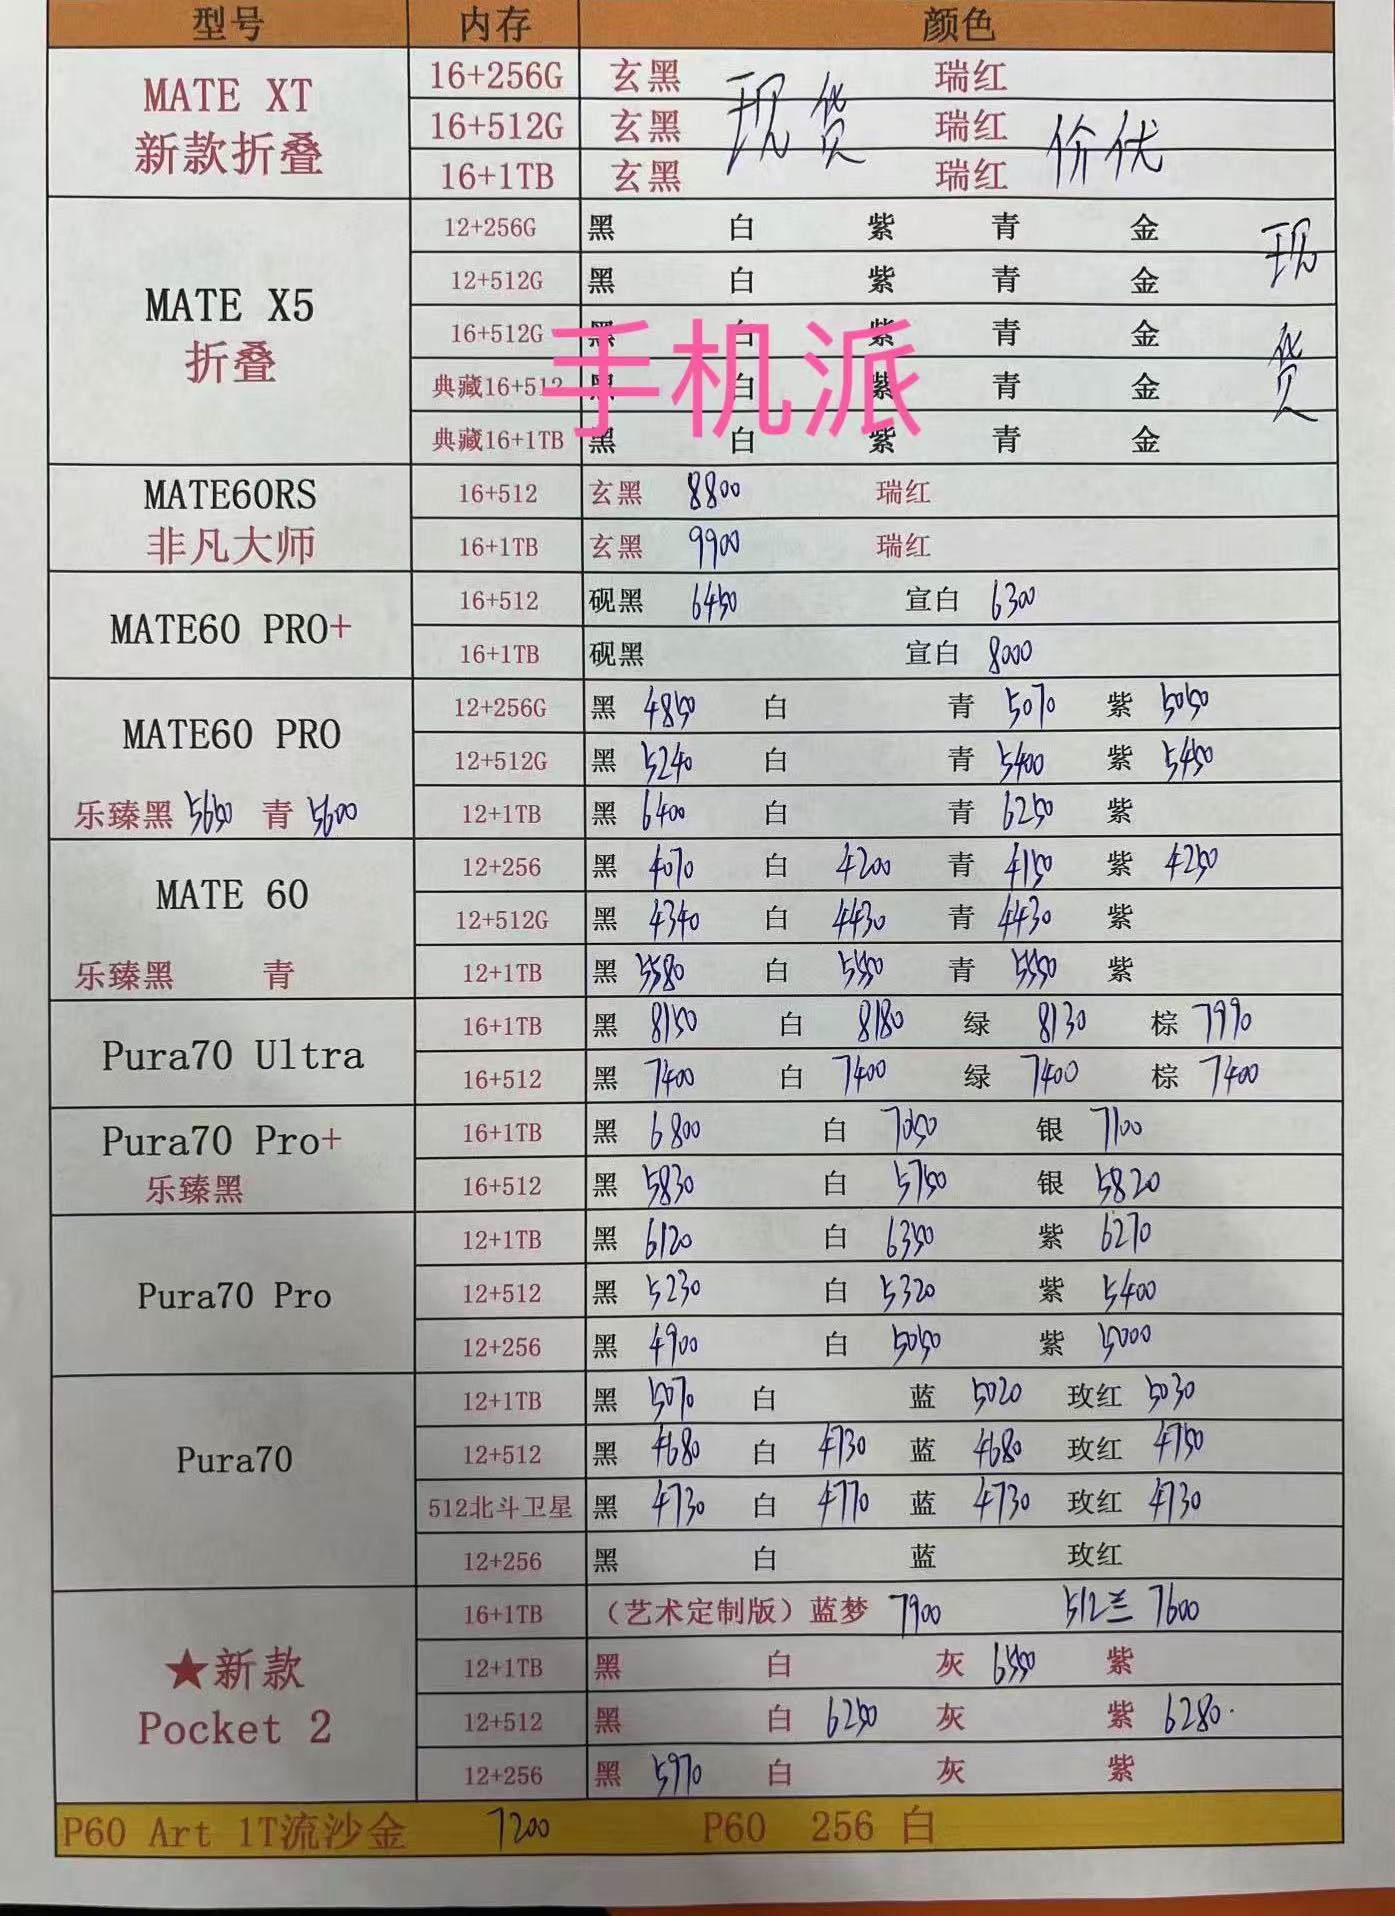 型号 内存 颜色
MATE XT 新款折叠 16+256G 玄黑 瑞红
16+512G 玄黑 现货 瑞红 价优
16+1TB 玄黑 瑞红
MATE X5 折叠 12+256G 黑 白 紫 青 金 现货
12+512G 黑 白 紫 青 金
16+512G 黑 白 紫 青 金
手机派
典藏16+512 黑 白 紫 青 金
典藏16+1TB 黑 白 紫 青 金
MATE60RS 16+512 玄黑 8800 瑞红
非凡大师 16+1TB 玄黑 9900 瑞红
MATE60 PRO+ 16+512 砚黑 6450 宣白 6300
16+1TB 砚黑 宣白 8000
MATE60 PRO 12+256G 黑 4850 白 青 5070 紫 5050
12+512G 黑 5240 白 青 5400 紫 5450
乐臻黑 5650 青 5600 12+1TB 黑 6400 白 青 6250 紫
MATE 60 12+256 黑 4070 白 4200 青 4150 紫 4250
12+512G 黑 4340 白 4430 青 4430 紫
乐臻黑 青 12+1TB 黑 5580 白 5550 青 5550 紫
Pura70 Ultra 16+1TB 黑 8150 白 8180 绿 8130 棕 7990
16+512 黑 7400 白 7400 绿 7400 棕 7400
Pura70 Pro+ 16+1TB 黑 6800 白 7050 银 7100
乐臻黑 16+512 黑 5830 白 5750 银 5820
Pura70 Pro 12+1TB 黑 6120 白 6350 紫 6270
12+512 黑 5230 白 5320 紫 5400
12+256 黑 4900 白 5050 紫 5000
Pura70 12+1TB 黑 5070 白 蓝 5020 玫红 5030
12+512 黑 4680 白 4730 蓝 4680 玫红 4750
512北斗卫星 黑 4730 白 4770 蓝 4730 玫红 4730
12+256 黑 白 蓝 玫红
★新款 Pocket 2 16+1TB （艺术定制版）蓝梦 7900 512兰 7600
12+1TB 黑 白 灰 6550 紫
12+512 黑 白 6250 灰 紫 6280
12+256 黑 5970 白 灰 紫
P60 Art 1T流沙金 7200 P60 256 白